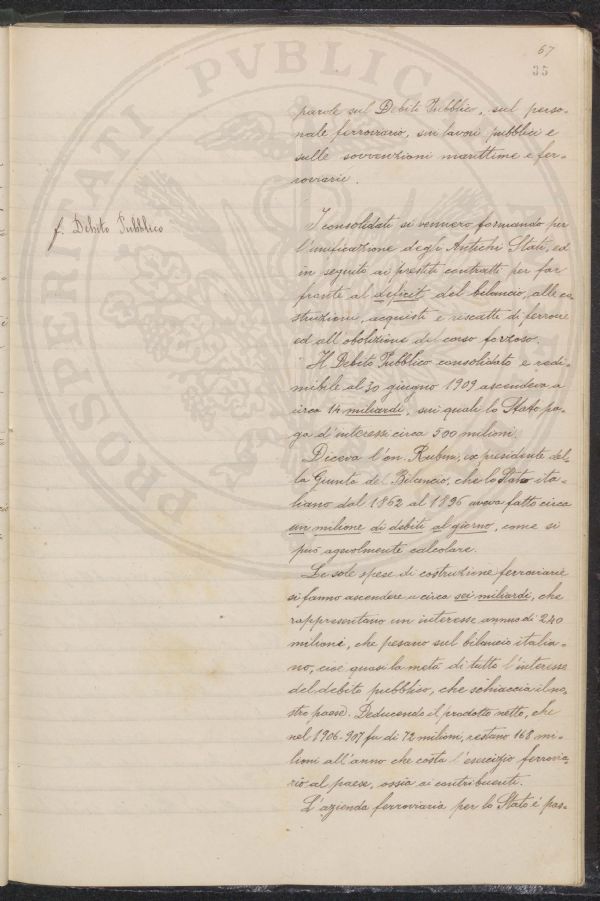 67
35
parole sul Debito Pubblico, sul perso-
nale ferroviario, sui lavori pubblici e
sulle sovvenzioni marittime e fer-
roviarie.
f. Debito Pubblico
I consolidati si vennero formando per
l'unificazione degli Antichi Stati, ed
in seguito ai prestiti contratti per far
fronte al deficit del bilancio, alle co-
struzioni, acquisti e riscatti di ferrovie
ed all'abolizione del corso forzoso.
Il Debito Pubblico consolidato e redi-
mibile al 30 giugno 1909 ascendeva a
circa 14 miliardi, sui quali lo Stato pa-
ga d'interessi circa 500 milioni.
Diceva l'on. Rubini, ex presidente del-
la Giunta del Bilancio, che lo Stato ita-
liano dal 1862 al 1896 aveva fatto circa
un milione di debiti al giorno, come si
può agevolmente calcolare.
Le sole spese di costruzione ferroviarie
si fanno ascendere a circa sei miliardi, che
rappresentano un interesse annuo di 240
milioni, che pesano sul bilancio italia-
no, cioè quasi la metà di tutto l'interesse
del debito pubblico, che schiaccia il no-
stro paese. Deducendo il prodotto netto, che
nel 1906-907 fu di 72 milioni, restano 168 mi-
lioni all'anno che costa l'esercizio ferrovia-
rio al paese, ossia ai contribuenti.
L'azienda ferroviaria per lo Stato è pas-
PROSPERITATI PVBLICAE